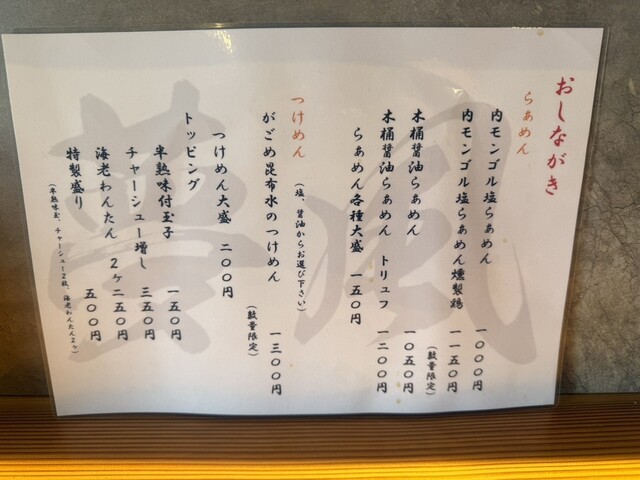 おしながき
らぁめん
内モンゴル塩らぁめん 一〇〇〇円
内モンゴル塩らぁめん燻製鶏 一一五〇円
(数量限定)
木桶醤油らぁめん 一〇五〇円
木桶醤油らぁめん トリュフ 一二〇〇円
らぁめん各種大盛 一五〇円
つけめん
(塩、醤油からお選び下さい)
がごめ昆布水のつけめん 一三〇〇円
(数量限定)
つけめん大盛 二〇〇円
トッピング
半熟味付玉子 一五〇円
チャーシュー増し 三五〇円
海老わんたん 2ヶ 二五〇円
特製盛り 五〇〇円
(半熟味玉、チャーシュー2枚、海老わんたん2ヶ)
夢風